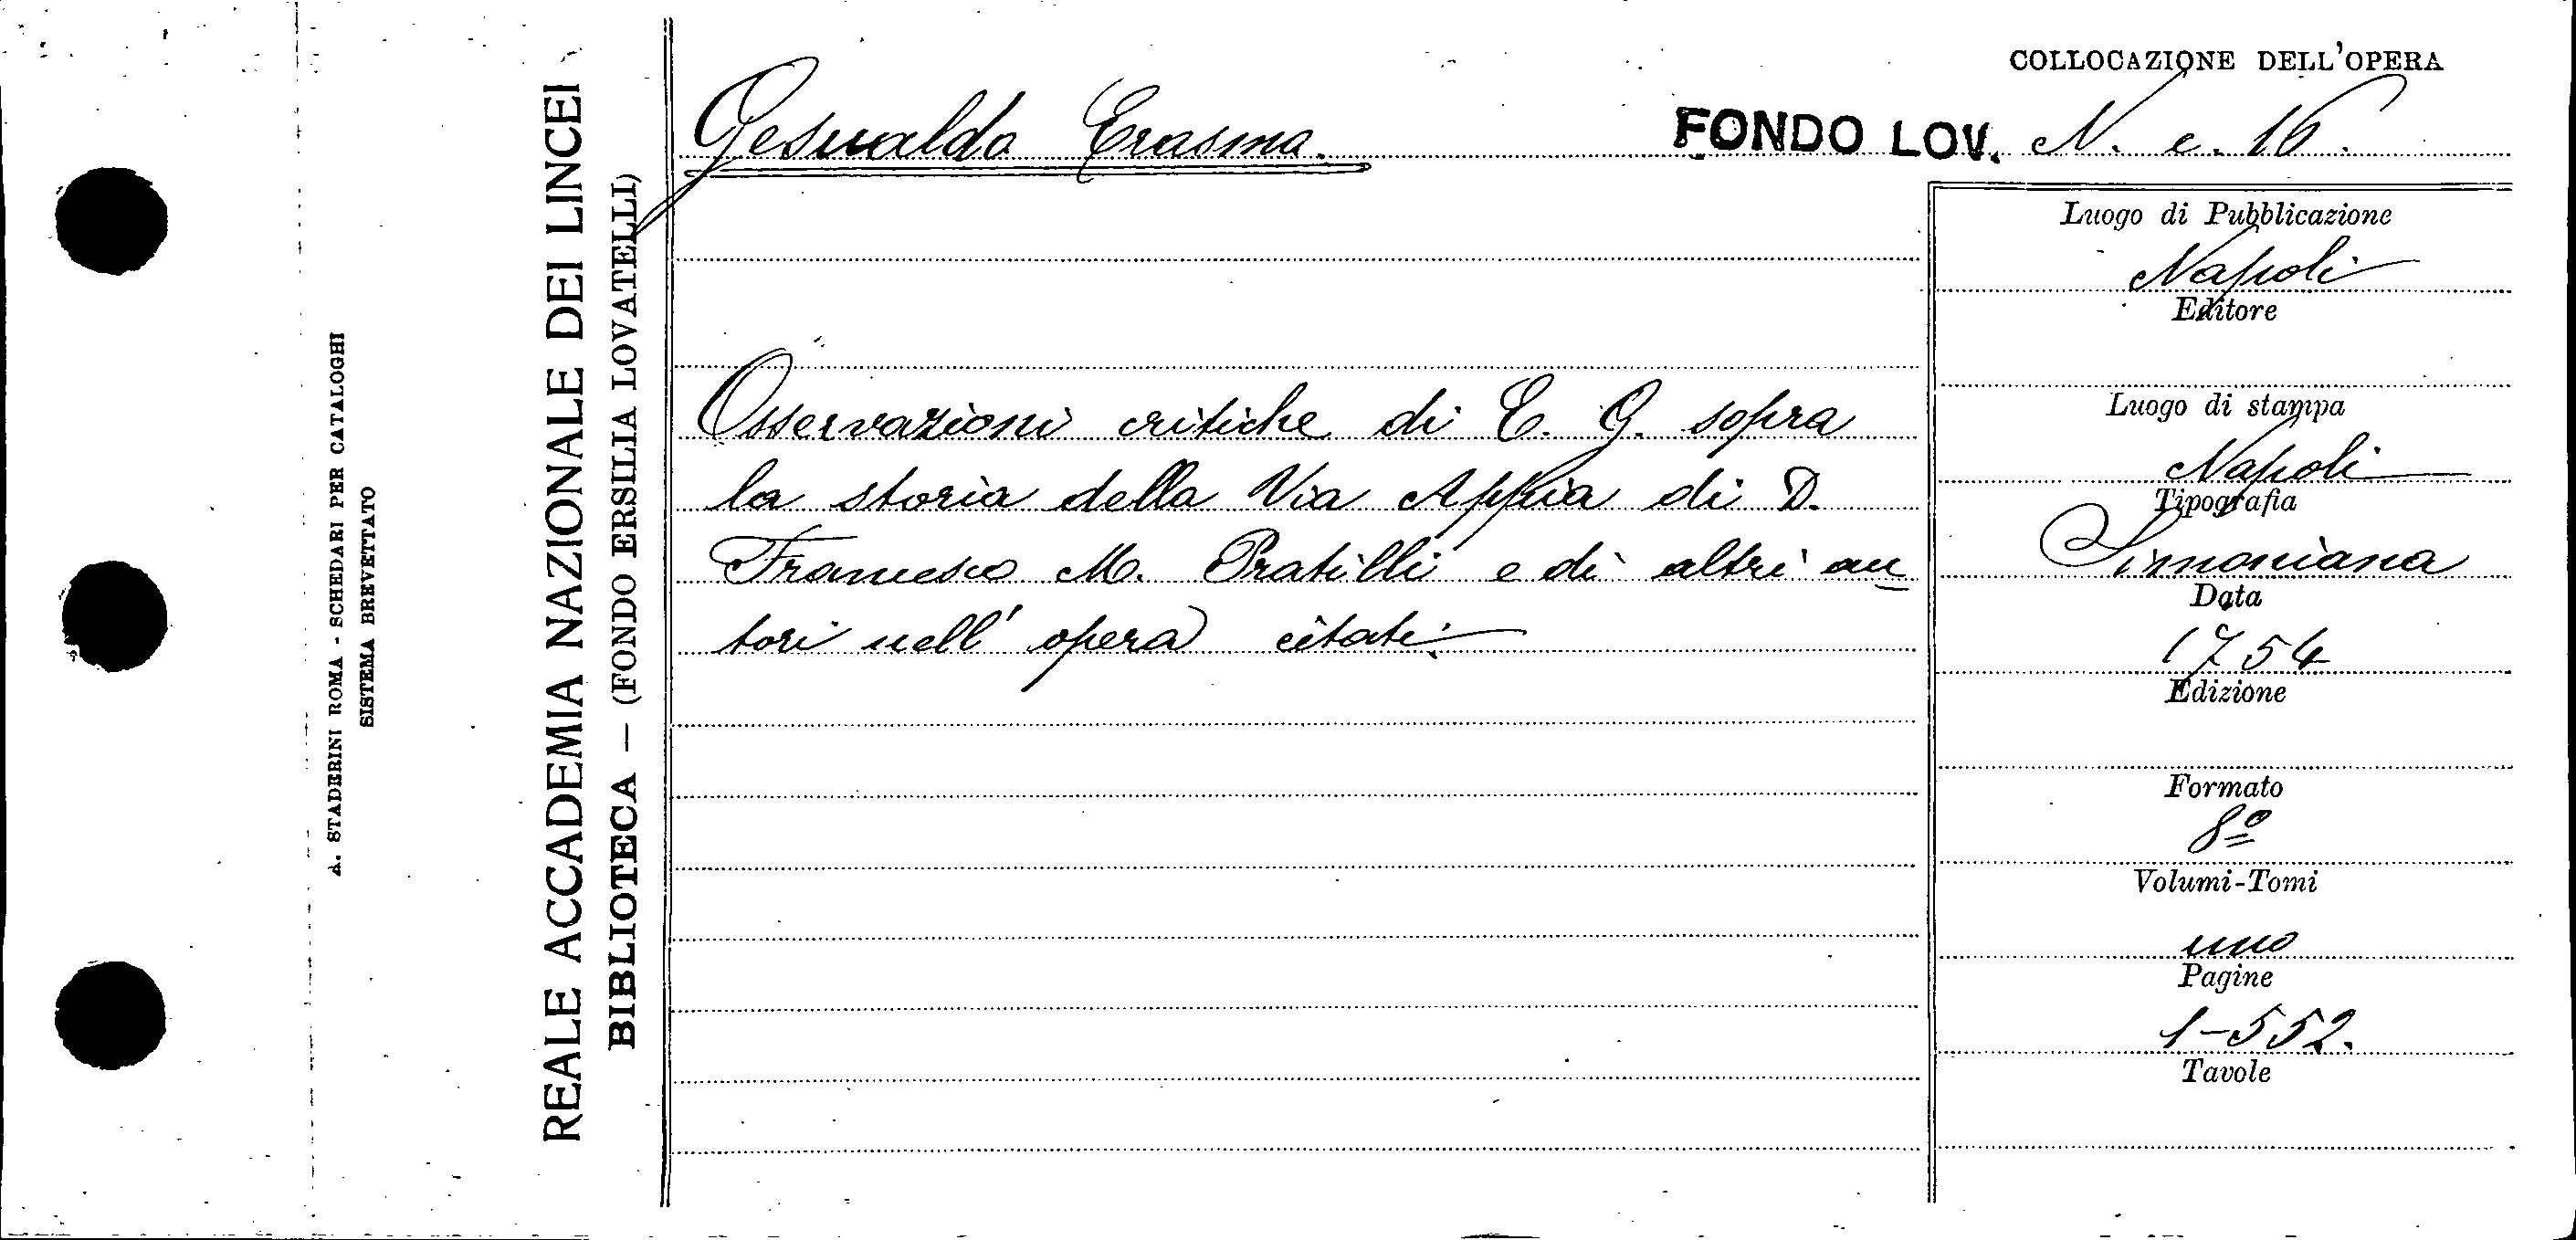 COLLOCAZIONE DELL'OPERA
Gesualdo Erasmo.
FONDO LOV. N. c. 16.
Osservazioni critiche di E. G. sopra
la storia della Via Appia di D.
Francesco M. Pratilli e di altri au
tori nell' opera citati.
Luogo di Pubblicazione
Napoli
Editore
Luogo di stampa
Napoli
Tipografia
Simoniana
Data
1754
Edizione
Formato
8º
Volumi-Tomi
uno
Pagine
1-552.
Tavole
REALE ACCADEMIA NAZIONALE DEI LINCEI
BIBLIOTECA — (FONDO ERSILIA LOVATELLI)
A. STADERINI ROMA - SCHEDARI PER CATALOGHI
SISTEMA BREVETTATO